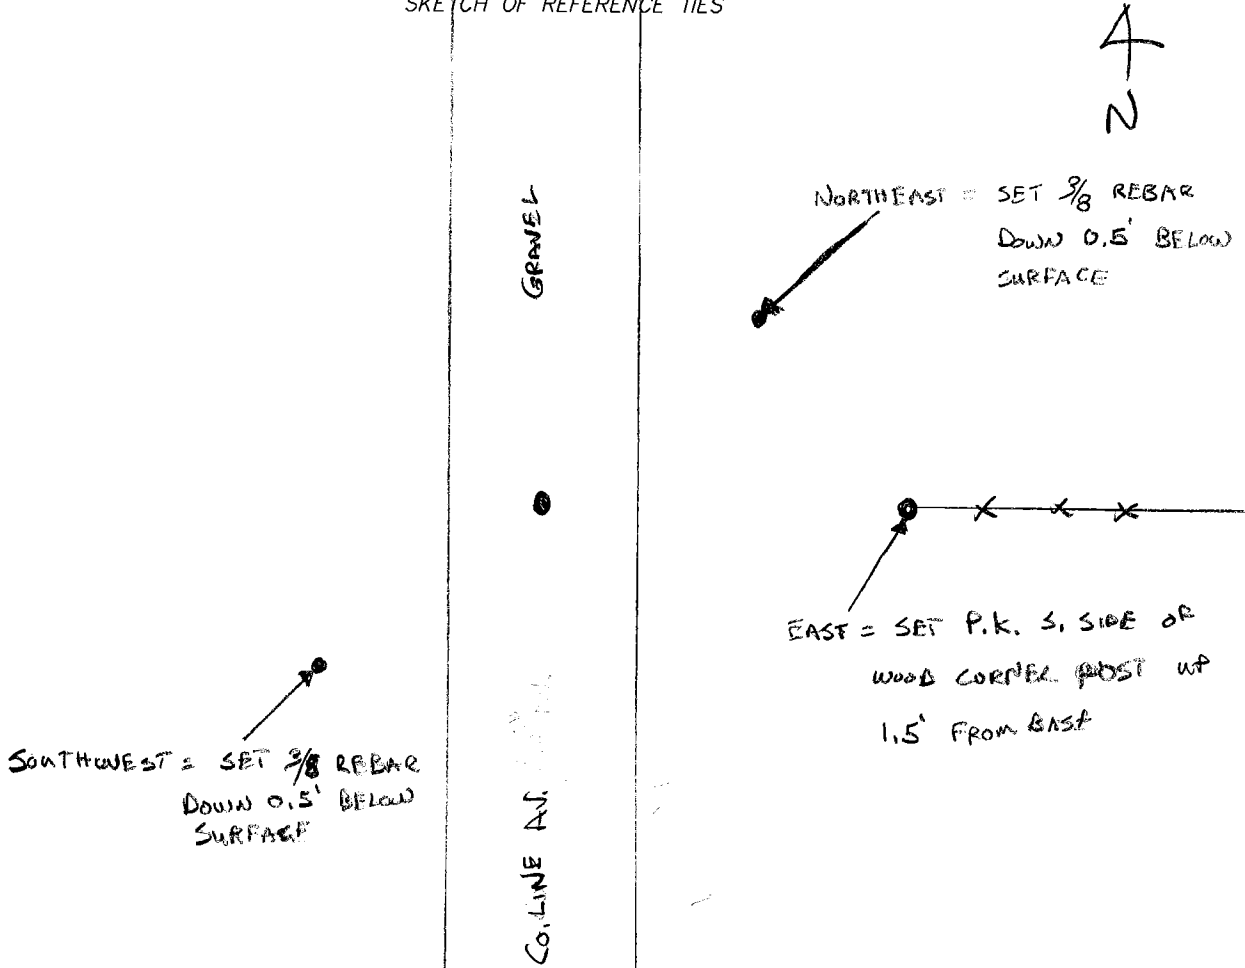 SKETCH OF REFERENCE TIES
N
NORTHEAST = SET 3/8 REBAR
DOWN 0.5' BELOW
SURFACE
GRAVEL
EAST = SET P.K. S. SIDE OF
WOOD CORNER POST UP
1.5' FROM BASE
SOUTHWEST = SET 3/8 REBAR
DOWN 0.5' BELOW
SURFACE
CO. LINE AV.